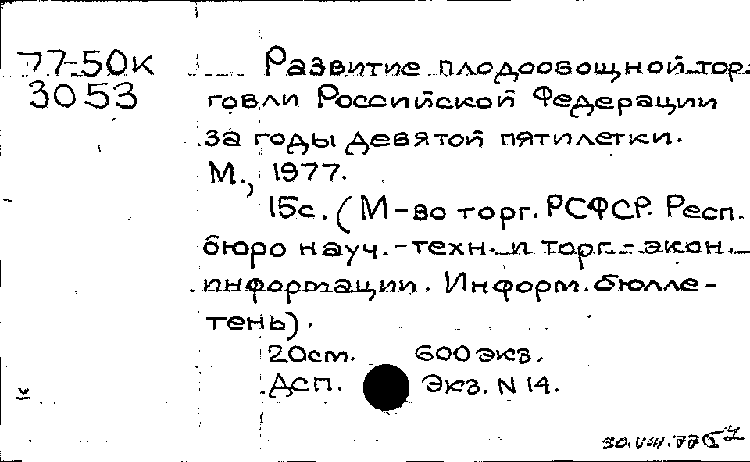 77-50к
3053
Развитие плодоовощной тор-
говли Российской Федерации
за годы девятой пятилетки.
М., 1977.
15с. (М-во торг. РСФСР. Респ.
бюро науч.-техн. и торг.-экон.
информации. Информ. бюлле-
тень).
20см. 600 экз.
Дсп. Экз. N 14.
30.VIII.77